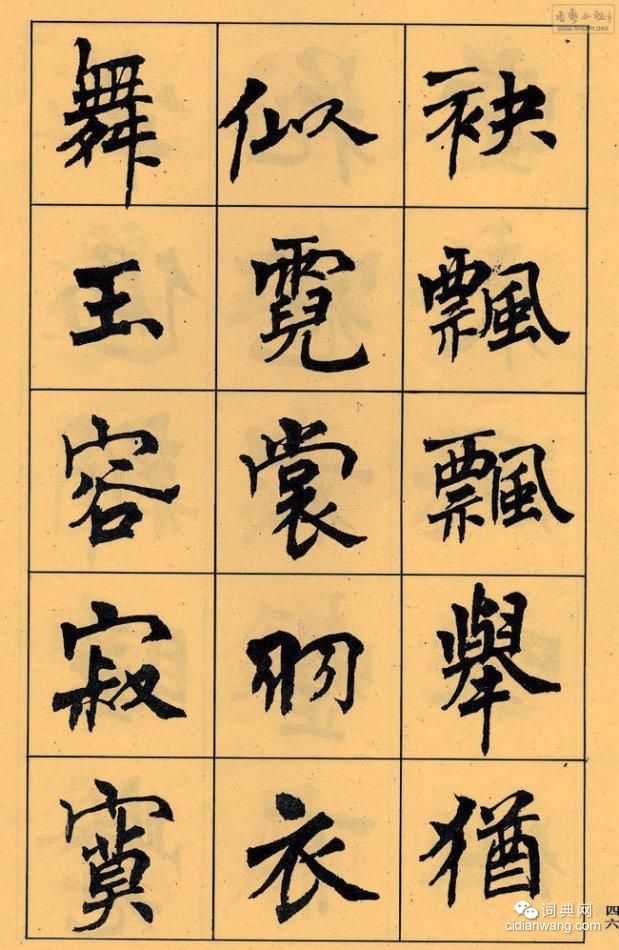 袂飄飄舉猶
似霓裳羽衣
舞玉容寂寞
四六
词典网
cidianwang.com